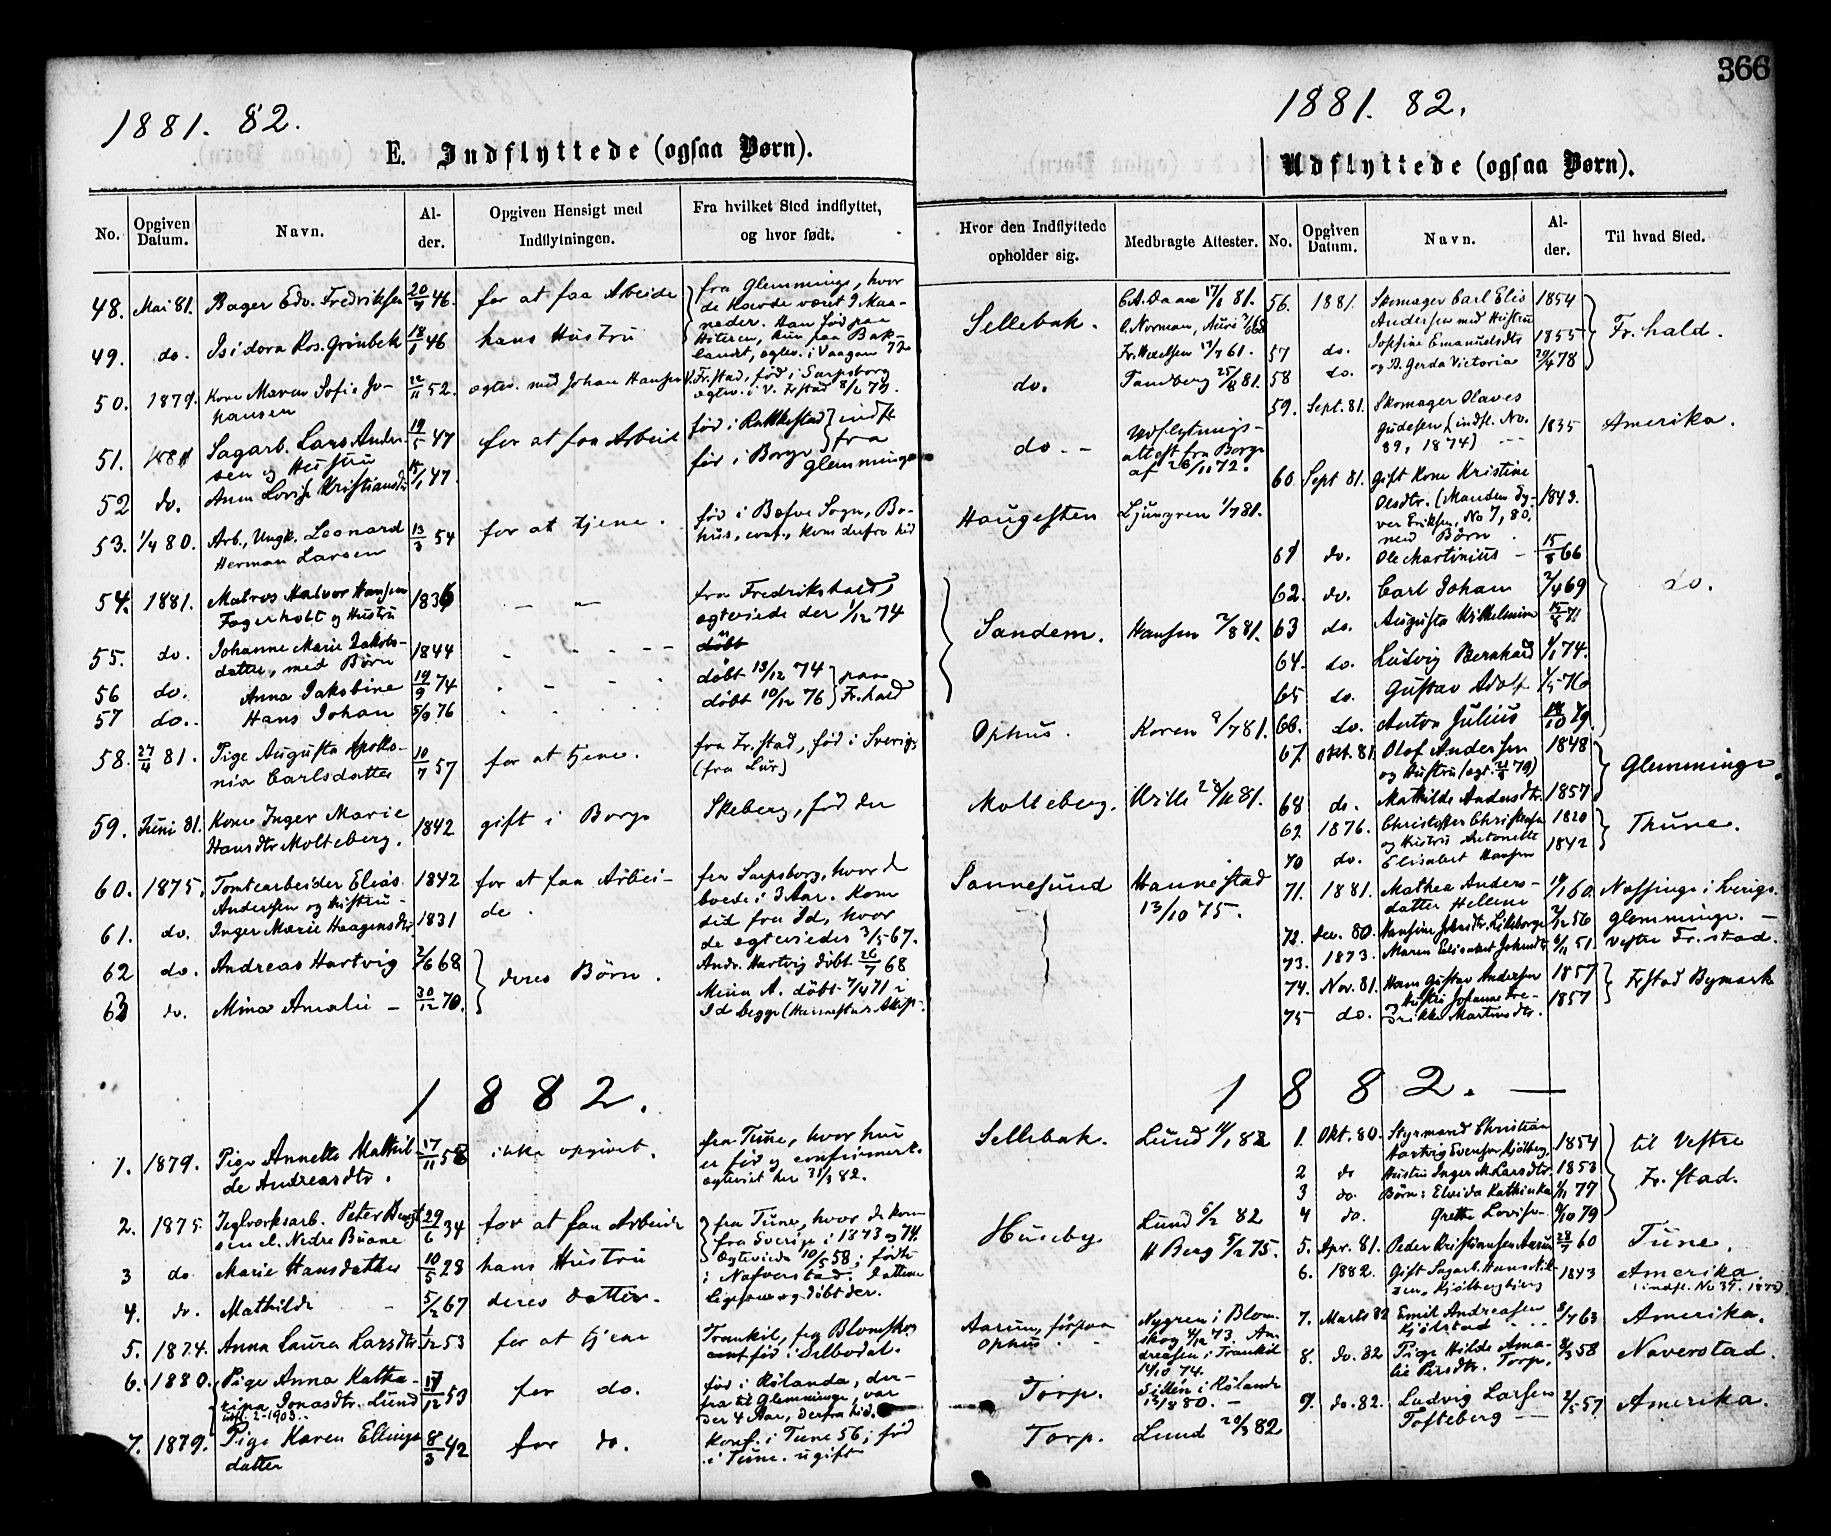 366
1881. 82.
E. Indflyttede (ogsaa Børn).
No.
Opgiven Datum.
Navn.
Alder.
Opgiven Hensigt med Indflytningen.
Fra hvilket Sted indflyttet, og hvor født.
48. Mai 81. Bager Edv. Fredriksen 20/7 46. for at faa Arbeide
fra Glemminge, hvor
de havde været 9 Maa-
neder. Han født paa
Hiteren, hun paa Bak-
landet, egtev. i Vaagan 72
49. do. Isidora Ros. Grønbek 18/1 46 hans Hustru
50. 1879. Kone Maren Sofie Jo-
hansen 12/11 52. egtev. med Johan Hansen
V. Fr.stad, født i Sarpsborg
egtev. i V. Frstad 8/2 79.
51. 1881 Sagarb. Lars Ander-
sen og Hustru 19/5 47 for at faa Arbeid
født i Rakkestad indfl.
52 do. Anna Lovise Kristiansdtr 15/1 47.
født i Borge fra Glemminge
53. 1/4 80. Arb., Ungk. Leonard
Herman Larsen 13/3 54 for at tjene.
født i Bæfve Sogn, Bo-
hus, conf., kom derfra hid
54. 1881. Matros Halvor Hansen
Fagerholt og Hustru 1836
fra Fredrikshald,
egteviede der 1/12 74
55. do. Johanne Marie Jakobs-
datter, med Børn 1844
56 do. Anna Jakobine 19/9 74
døbt 13/12 74 paa
57 do. Hans Johan 5/9 76
døbt 10/12 76 Fr.hald
58. 27/4 81. Pige Augusta Apollo-
nia Carlsdatter 10/7 57 for at tjene.
fra Fr.stad, født i Sverige
(fra Lur)
59. Juni 81. Kone Inger Marie
Hansdtr Molteberg. 1842 gift i Borge
Skeberg, født der
60. 1875. Tomtearbeider Elias
Andersen og Hustru 1842 for at faa Arbei-
de.
fra Sarpsborg, hvor de
boede i 3 Aar. Kom
did fra Id, hvor
de egteviedes 3/5 67.
61. do. Inger Marie Haagensdtr 1831
62 do. Andreas Hartvig 2/6 68 deres Børn.
Andr. Hartvig døbt 26/7 68
63 do. Mina Amalie 30/12 70.
Mina A. døbt 7/4 71 i
Id begge
1882.
1. 1879. Pige Annette Mathil-
de Andreasdtr. 17/11 58 ikke opgivet.
fra Tune, hvor hun
er født og confirmert.
egteviet her 31/3 82.
2. 1875. Teglverksarb. Peter
Nedre Buane 29/6 34 for at faa Arbeide
fra Tune, hvor de kom
fra Sverige i 1873 og 74.
Egteviede 10/5 58; født
i Nafverstad. Datteren
ligesaa og døbt der.
3 do Marie Hansdatter 10/5 28 hans Hustru
4. do. Mathilde 5/2 67 deres Datter.
5. 1874. Anna Laura Larsdtr 1/12 53 for at tjene
Trankil, Blomskog
født i Silbodal.
6. 1880. Pige Anna Katha-
rina Jonasdtr. Lund 17/12 53 for do.
udfl. 2-1903.
født i Rølanda, der-
fra til Glemminge, var
der 4 Aar, derfra hid.
7. 1879. Pige Karen Ellings-
datter 8/3 42 for do.
Konf. i Tune 56; født
i Tune. ugift
1881. 82.
Udflyttede (ogsaa Børn).
Hvor den Indflyttede opholder sig.
Medbragte Attester.
No.
Opgiven Datum.
Navn.
Alder.
Til hvad Sted.
Sellebak.
C.A. Daae 17/1 81.
do.
Tandberg 25/8 81.
do.
Udflytnings-
attest fra Borge
af 26/11 72.
Haugesten Ljungren 1/7 81.
Sandem. Hansen 7/8 81.
Ophus. Koren 9/7 81.
Molteberg. Wille 28/11 81.
Sannesund Hannestad
13/10 75.
56. 1881. Skomager Carl Elis
Andersen med Hustru 1854 Fr.hald.
57 do. Josefine Emanuelsdtr 1855
58 do. og D. Gerda Victoria 29/4 78
59. Sept. 81. Skomager Olaves
Gudesen (indfl. No.
89, 1874) 1835 Amerika.
60. Sept 81. Gift Kone Kristine
Olsdtr. (Manden Sy-
ver Eriksen, No 7, 80,
med Børn 1843. do.
61 do. Ole Martinius 15/8 66
62. do. Carl Johan 2/4 69
63 do. Augusta Wilhelmine 15/8 71
64. do. Ludvig Bernhard 4/1 74.
65 do. Gustav Adolf 1/5 76
66. do. Anton Julius 14/10 79
67. Okt. 81. Olaf Andersen
og Hustru 1848 Glemminge.
68 do. Mathilde Andersdtr. 1857
69. 1876. Christoffer Christensen
og Hustru Antonette 1820 Thune.
70 do. Elisabet Hansen 1842
71. 1881. Mathea Anders-
datter Helene 19/1 60. Naffinge i Sverige.
72. Dec. 80. Hansine Johsdtr. Lilleborge 2/12 56 Glemminge.
73. 1873. Maren Elisabet Johnsdtr 6/11 51 Vestre Fr.stad.
74. Nov. 81. Hans Gustav Andersen 1857 Frstad Bymark
75 do. og Hustru Johanne Fre-
drikke Martinsdtr. 1857
1882.
Sellebak. Lund 14/1 82
Huseby Lund 6/2 82
H Berg 5/2 75.
Aarum, forsaa
Ophus.
Nygren i Blom-
skog 4/12 73. An-
dreasen i Trankil
14/10 74.
Torp.
i Rølanda
15/8 80.
Torp. Lund 20/3 82
1. Okt. 80. Styrmand Christian
Hartvig Evensen Kjølberg, 1854 til Vestre
Fr. stad.
2 do Hustru Inger M. Larsdtr. 1853
3 do. Børn: Elvida Kathinka 6/11 77
4 do. Grethe Lovise 9/10 79
5. Apr. 81. Peder Kristiansen Aarum 28/7 60 Tune.
6. 1882. Gift Sagarb. Hans Nil-
sen, Kjølbergbjerg 1843 Amerika
(indfl. No 39. 1872)
7. Marts 82 Emil Andreassen
Kjølstad 8/7 63 Amerika.
8. do. 82 Pige Hilde Ama-
lie Persdtr. Torp. 9/3 58 Naverstad.
9. do. 82. Ludvig Larsen
Tofteberg 2/5 57 Amerika.